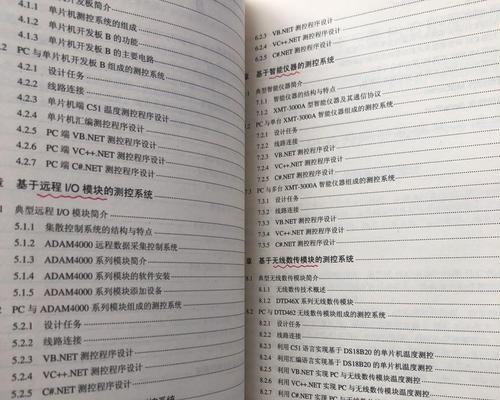 开发板简介
4.1.1 单片机测控系统的组成
4.1.2 单片机开发板 B 的功能
4.1.3 单片机开发板 B 的主要电路
4.2 PC 与单片机开发板 B 组成的测控系统
4.2.1 设计任务
4.2.2 线路连接
4.2.3 单片机端 C51 温度测控程序设计
4.2.4 单片机汇编测控程序设计
4.2.5 PC 端 VB.NET 测控程序设计
4.2.6 PC 端 VC++.NET 测控程序设计
4.2.7 PC 端 C#.NET 测控程序设计
章 基于远程 I/O 模块的测控系统
.1 典型远程 I/O 模块简介
5.1.1 集散控制系统的结构与特点
5.1.2 ADAM4000 远程数据采集控制系统
5.1.3 ADAM4000 系列模块简介
5.1.4 ADAM4000 系列模块的软件安装
5.1.5 ADAM4000 系列模块添加设备
.2 PC 与 ADAM4000 系列模块组成的测控系统
5.2.1 设计任务
5.2.2 线路连接
5.2.3 VB.NET 测控程序设计
5.2.4 VC++.NET 测控程序设计
5.2.5 C#.NET 测控程序设计
6.2.3 VB.NET 测控程序设计
6.2.4 VC++.NET 测控程序设计
6.2.5 C#.NET 测控程序设计
章 基于智能仪器的测控系统
典型智能仪器简介
7.1.1 智能仪器的结构与特点
7.1.2 XMT-3000A 型智能仪器及其通信协议
PC 与单台 XMT-3000A 智能仪器组成的测控系统
7.2.1 设计任务
7.2.2 线路连接
7.2.3 VB.NET 测控程序设计
7.2.4 VC++.NET 测控程序设计
7.2.5 C#.NET 测控程序设计
PC 与多台 XMT-3000A 智能仪器组成的测控系统
7.3.1 设计任务
7.3.2 线路连接
7.3.3 VB.NET 测控程序设计
7.3.4 VC++.NET 测控程序设计
7.3.5 C#.NET 测控程序设计
章 基于无线数传模块的测控系统
8.1 典型无线数传模块简介
8.1.1 无线数传技术概述
8.1.2 DTD46X 系列无线数传模块
8.2 PC 与 DTD462 无线数传模块组成的测控系统
8.2.1 设计任务
8.2.2 线路连接
8.2.3 利用 C51 语言实现基于 DS18B20 的单片机温度测控
8.2.4 利用汇编语言实现基于 DS18B20 的单片机温度测控
8.2.5 利用 VB.NET 实现 PC 与无线数传模块温度测控
8.2.6 利用 VC++.NET 实现 PC 与无线数传模块温度测控
8.2.7 利用 C#.NET 实现 PC 与无线数传模块温度测控